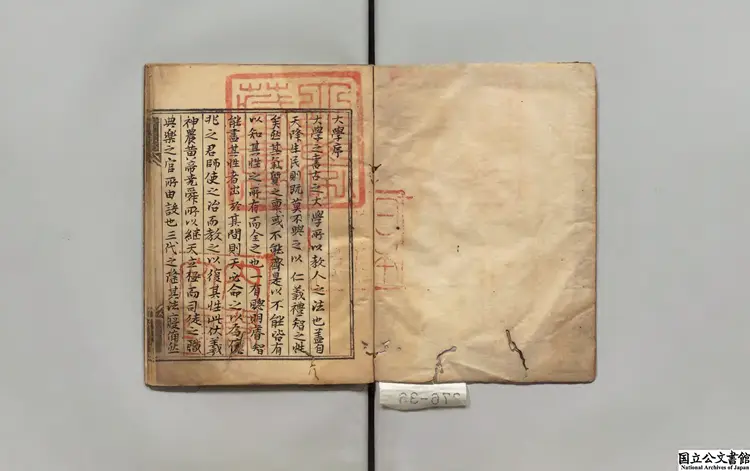 大學序
大學之書古之大學所以教人之法也蓋自
天降生民則既莫不與之以仁義禮智之性
矣然其氣質之稟或不能齊是以不能皆有
以知其性之所有而全之也一有聰明睿智
能盡其性者出於其間則天必命之以為億
兆之君師使之治而教之以復其性此伏羲
神農黃帝堯舜所以繼天立極而司徒之職
典樂之官所由設也三代之隆其法寖備然
276-35
国立公文書館
National Archives of Japan